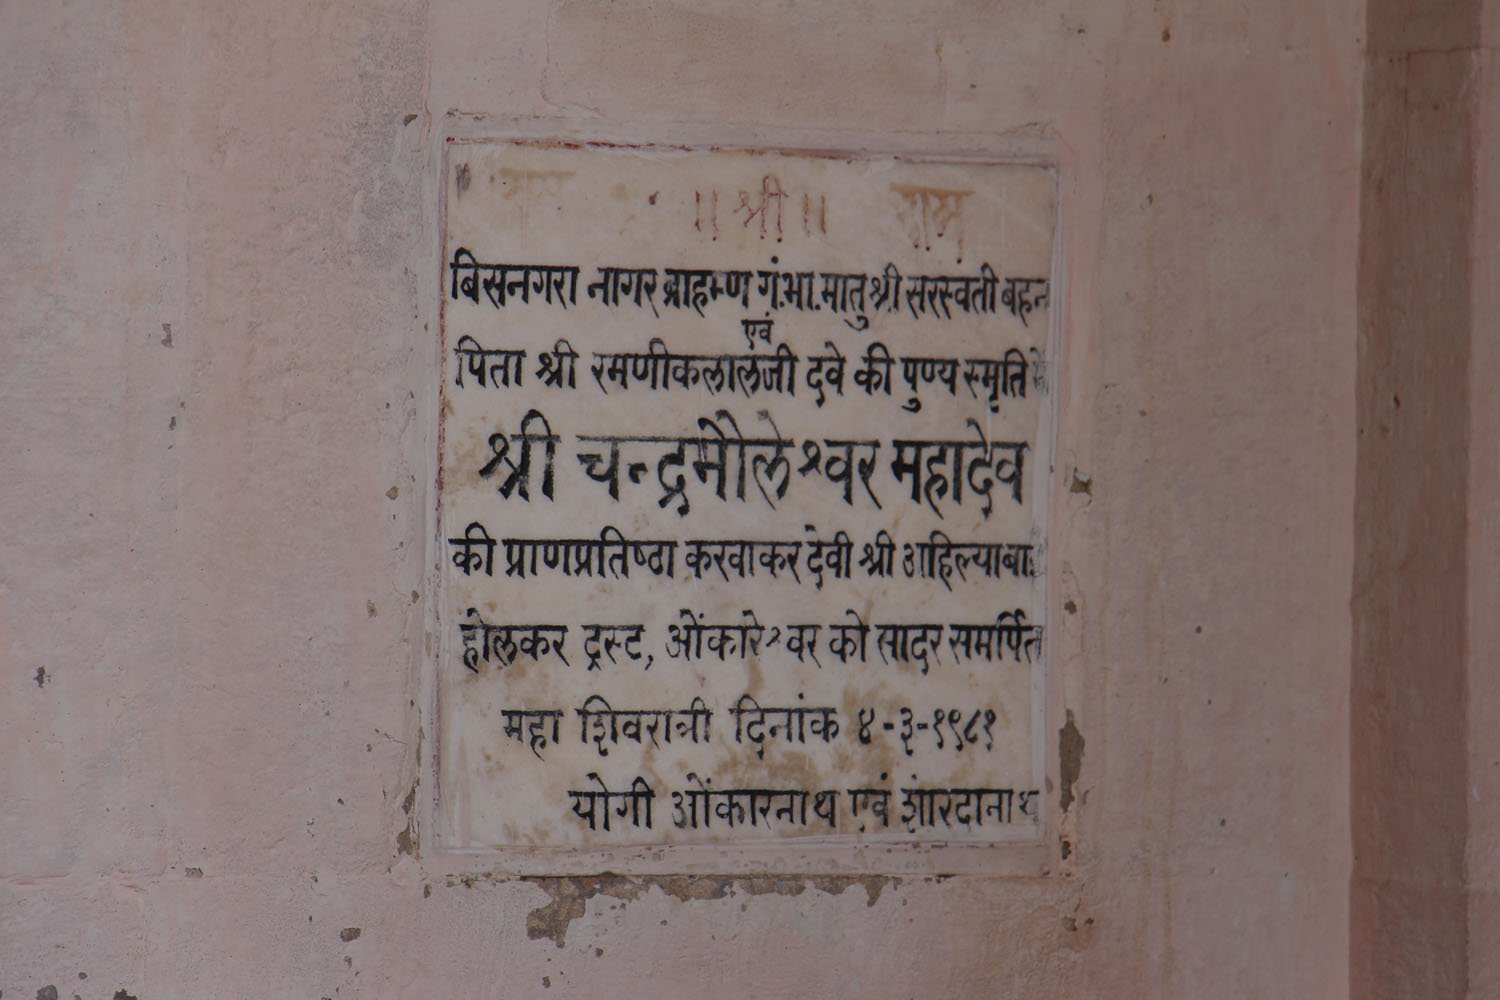 ॥ श्री ॥
बिसनगरा नागर ब्राहम्ण गं.भा.मातुश्री सरस्वती बहन
एवं
पिता श्री रमणीकलालजी दवे की पुण्य स्मृति में
श्री चन्द्रमौलेश्वर महादेव
की प्राणप्रतिष्ठा करवाकर देवी श्री अहिल्याबाई
होलकर ट्रस्ट, ओंकारेश्वर को सादर समर्पित
महा शिवरात्री दिनांक ४-३-१९८१
योगी ओंकारनाथ एवं शारदानाथ